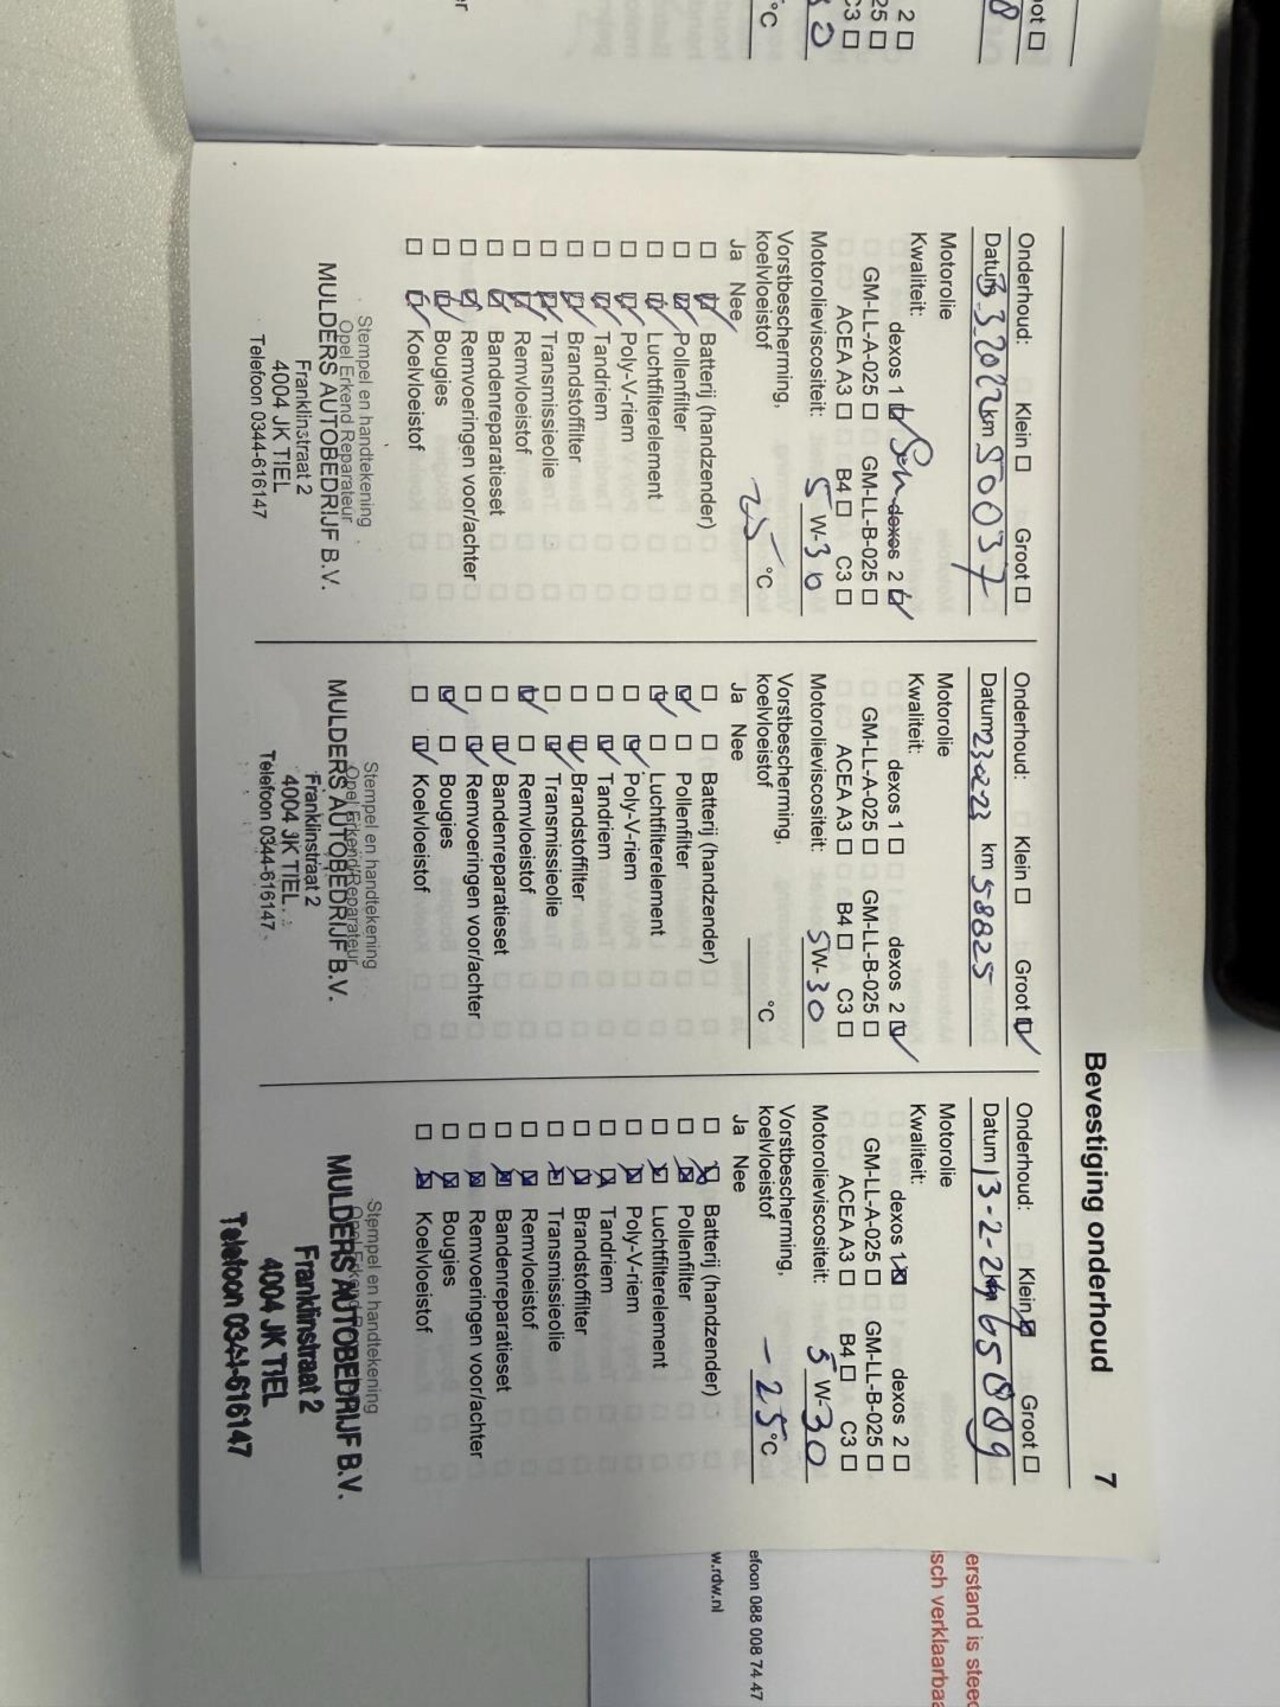 Bevestiging onderhoud
7
Onderhoud: Klein Groot
Datum 3 3 2022 km 50037
Motorolie
Kwaliteit: dexos 1 dexos 2
GM-LL-A-025 GM-LL-B-025
ACEA A3 B4 C3
Motorolieviscositeit: 5 W-30
Vorstbescherming,
koelvloeistof 25 °C
Ja Nee
Batterij (handzender)
Pollenfilter
Luchtfilterelement
Poly-V-riem
Tandriem
Brandstoffilter
Transmissieolie
Remvloeistof
Bandenreparatieset
Remvoeringen voor/achter
Bougies
Koelvloeistof
Stempel en handtekening
Opel Erkend Reparateur
MULDERS AUTOBEDRIJF B.V.
Franklinstraat 2
4004 JK TIEL
Telefoon 0344-616147
Onderhoud: Klein Groot
Datum km 58825
Motorolie
Kwaliteit: dexos 1 dexos 2
GM-LL-A-025 GM-LL-B-025
ACEA A3 B4 C3
Motorolieviscositeit: 5 W-30
Vorstbescherming,
koelvloeistof °C
Ja Nee
Batterij (handzender)
Pollenfilter
Luchtfilterelement
Poly-V-riem
Tandriem
Brandstoffilter
Transmissieolie
Remvloeistof
Bandenreparatieset
Remvoeringen voor/achter
Bougies
Koelvloeistof
Stempel en handtekening
Opel Erkend Reparateur
MULDERS AUTOBEDRIJF B.V.
Franklinstraat 2
4004 JK TIEL
Telefoon 0344-616147
Onderhoud: Klein Groot
Datum 13-2-24 km 65009
Motorolie
Kwaliteit: dexos 1 dexos 2
GM-LL-A-025 GM-LL-B-025
ACEA A3 B4 C3
Motorolieviscositeit: 5 W-30
Vorstbescherming,
koelvloeistof -25 °C
Ja Nee
Batterij (handzender)
Pollenfilter
Luchtfilterelement
Poly-V-riem
Tandriem
Brandstoffilter
Transmissieolie
Remvloeistof
Bandenreparatieset
Remvoeringen voor/achter
Bougies
Koelvloeistof
Stempel en handtekening
Opel Erkend
MULDERS AUTOBEDRIJF B.V.
Franklinstraat 2
4004 JK TIEL
Telefoon 0344-616147
erstand is steed
isch verklaarbaa
efoon 088 008 74 47
w.rdw.nl